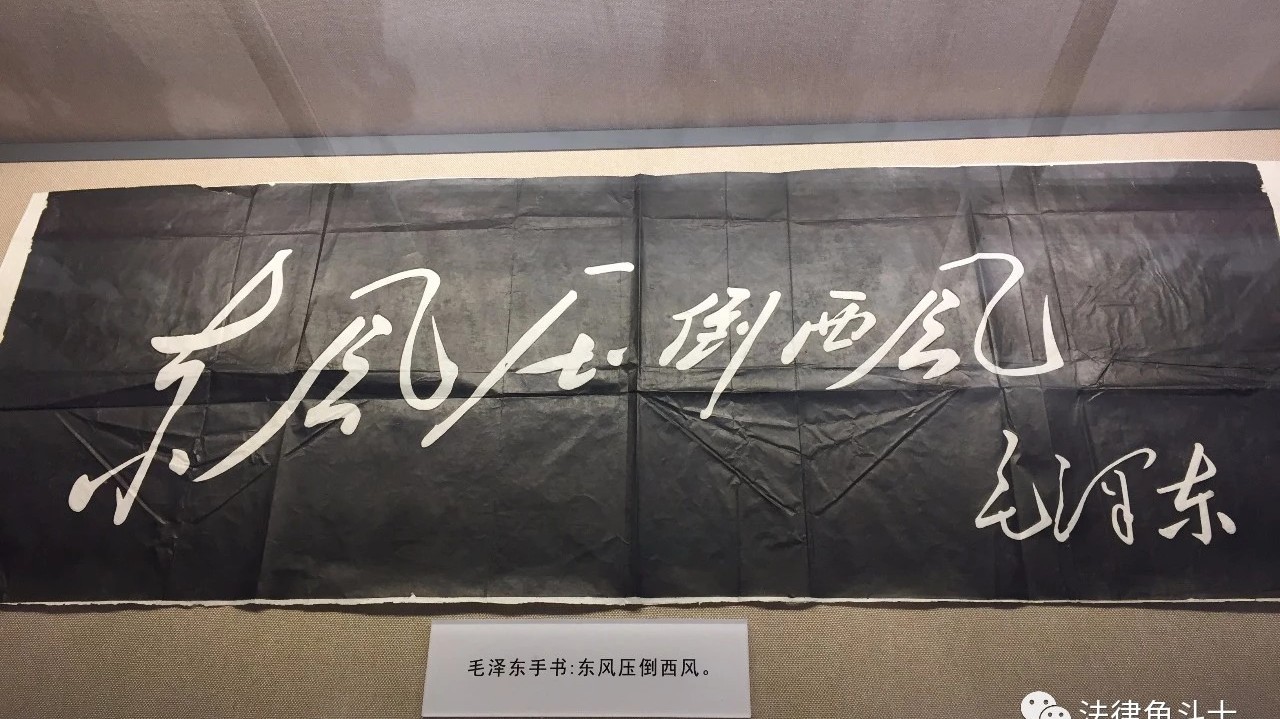 东风压倒西风
毛泽东
毛泽东手书:东风压倒西风。
法律角斗士